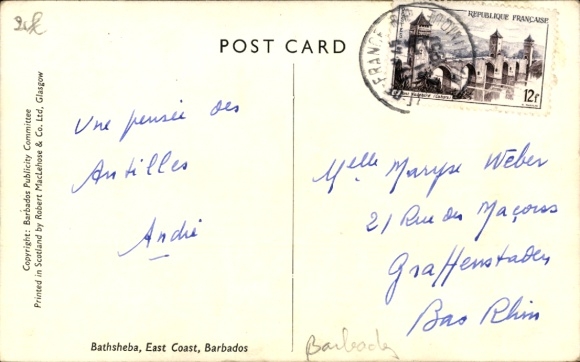 POST CARD
REPUBLIQUE FRANÇAISE
12F
Une pensée des
Antilles
André
Melle Maryse Weber
21 Rue des Maçons
Graffenstaden
Bas Rhin
Copyright: Barbados Publicity Committee
Printed in Scotland by Robert MacLehose & Co. Ltd, Glasgow
Bathsheba, East Coast, Barbados
Barbados